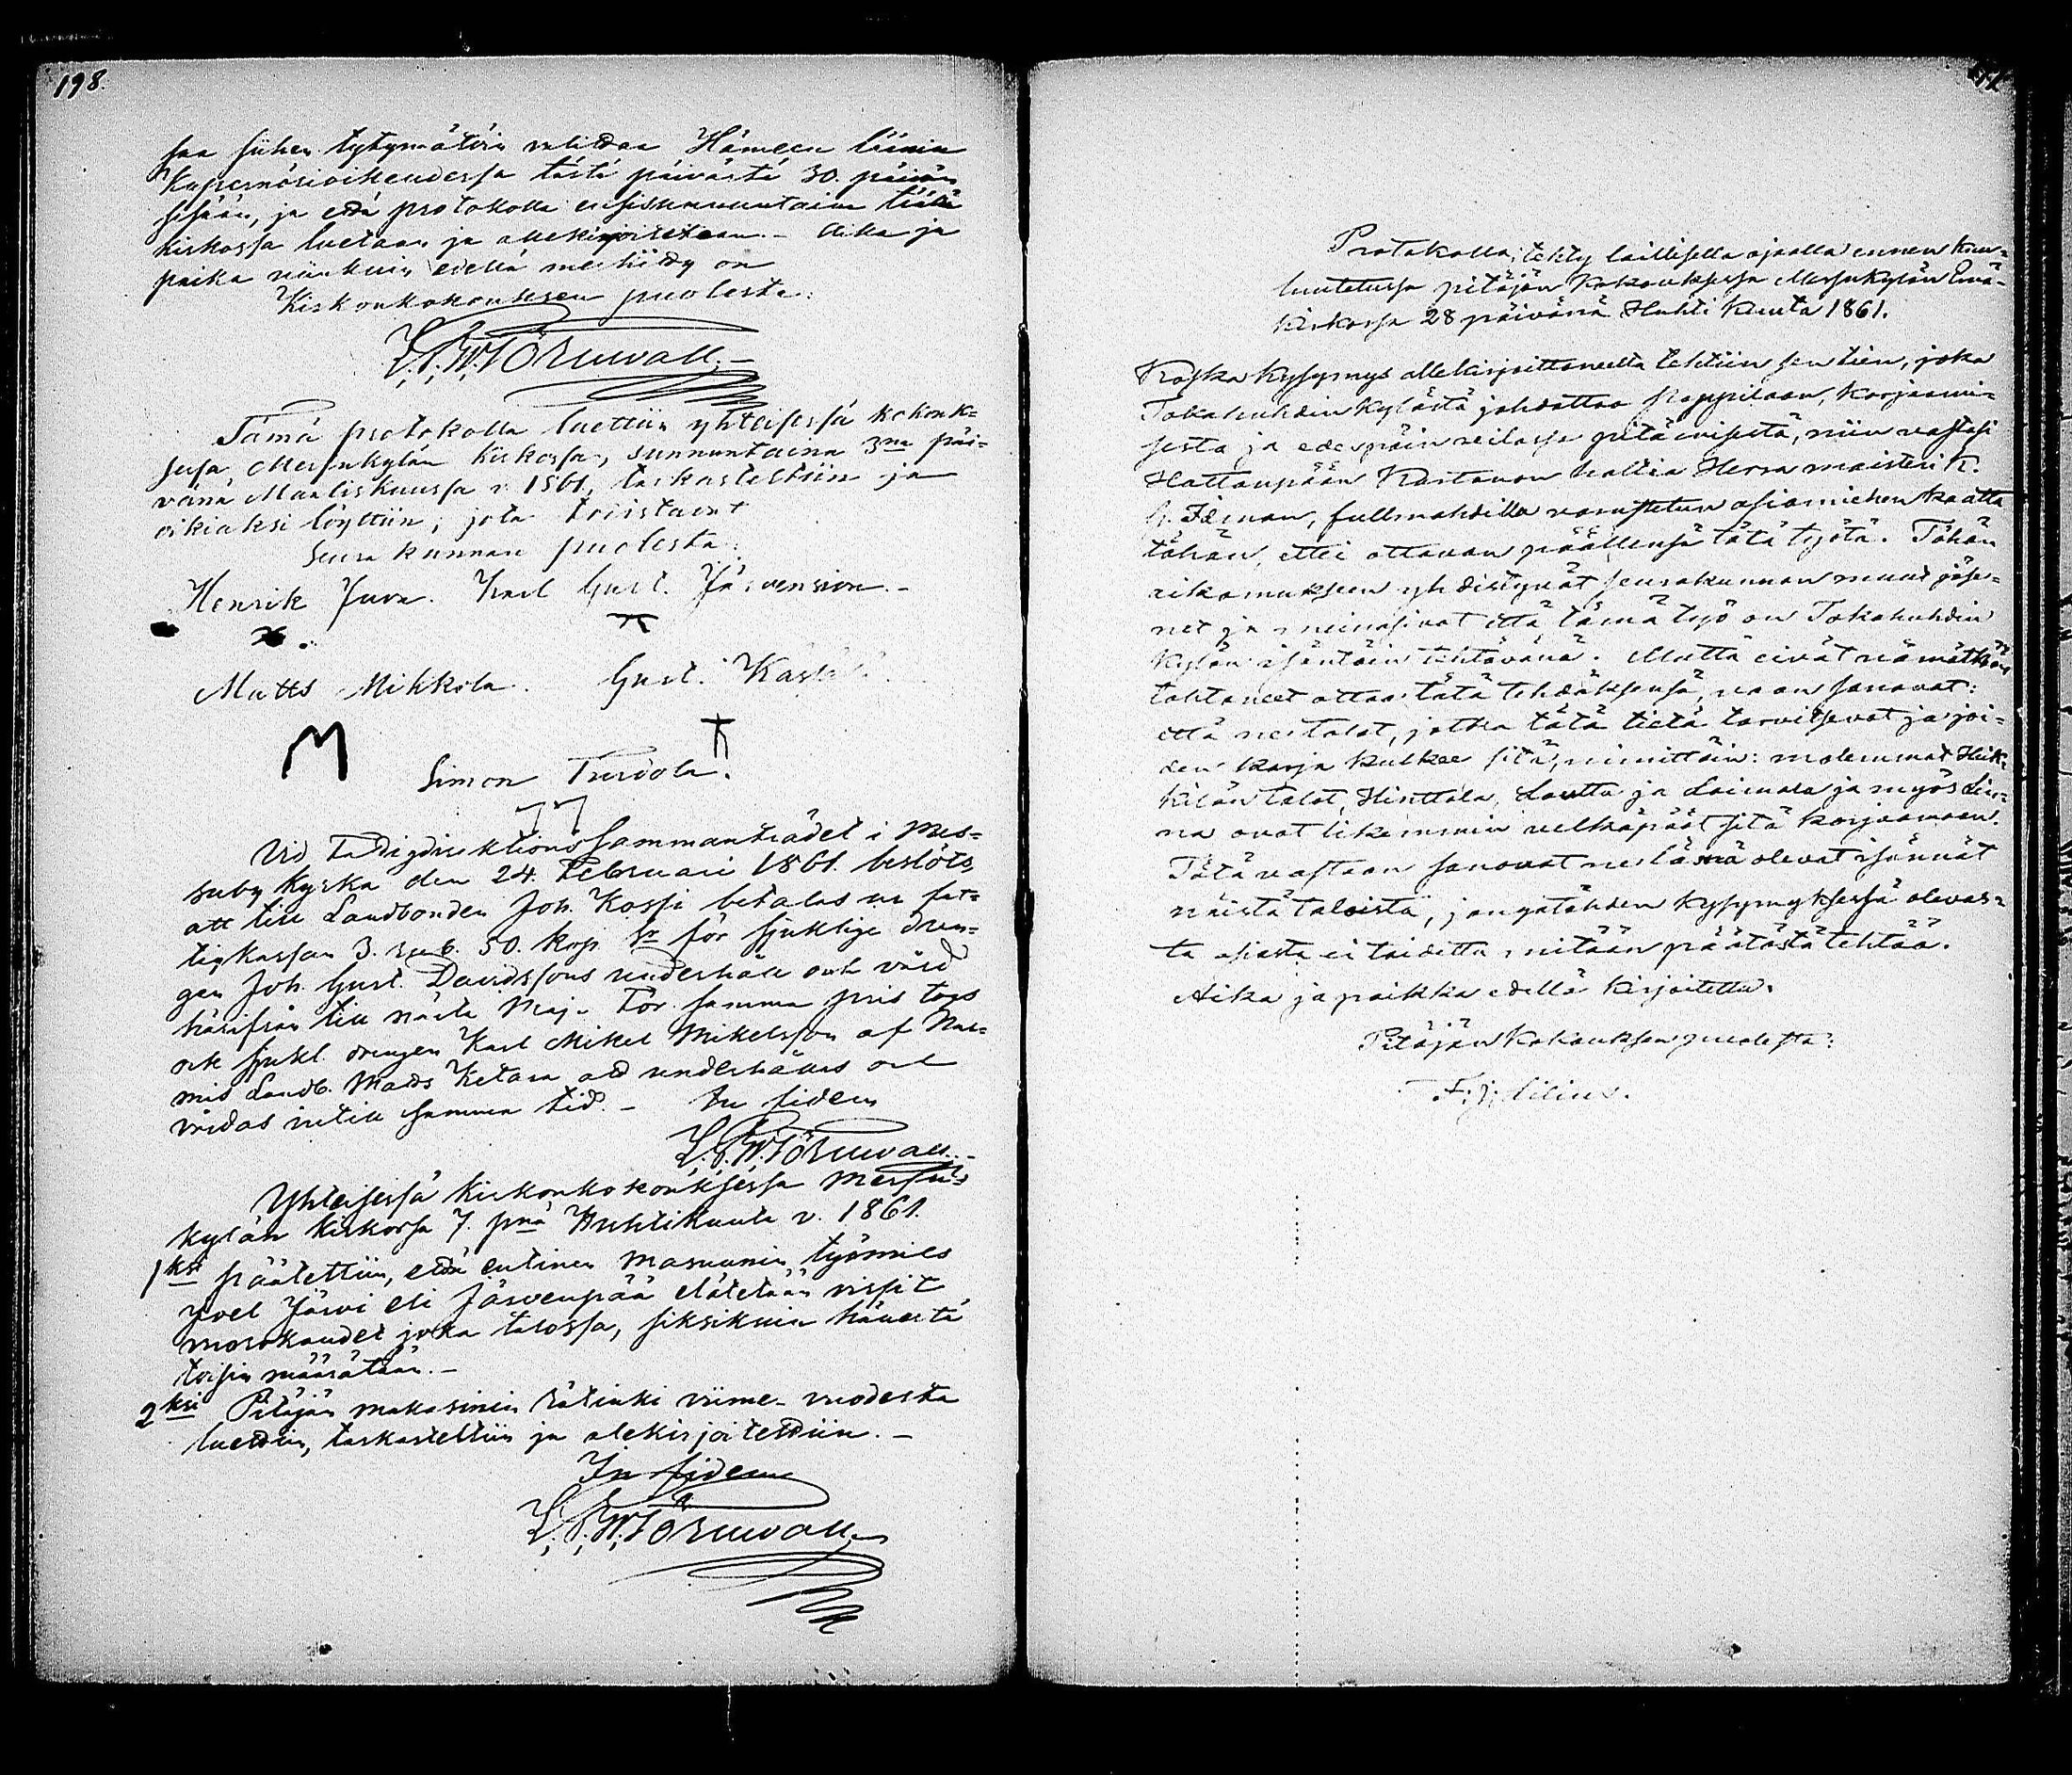 198.
saa siihen tytymätöin valittaa Hämeen läänin
Kupernörioikeudessa tästä päivästä 30. päivän
sisään, ja että protokolla ensisunnuntaina täälä
kirkossa luetaan ja allekirjoitetaan. – Aika ja
paika niinkuin edellä merkitty on
Kirkonkokouksen puolesta:
L. P. W. Törnwall. –
Tämä protokolla luettiin yhteisessä kokouk=
sessa Messukylän kirkossa, sunnuntaina 3na päi=
vänä Maaliskuussa v. 1861, tarkasteltiin ja
oikiaksi löyttiin; jota todistavat
Seurakunnan puolesta:
Henrik Juva. Karl Gust. Järvensivu. –
Matts Mikkola. Gust.
M
Simon Turvola.
Vid Fattigdirektions Sammanträdet i Mes=
suby kyrka den 24. Februari 1861. beslöts
att till Landbonden Joh. Kossi betalas ur fat=
tigkassan 3. rub. 50. kop. Sr för sjuklige dren=
gen Joh. Gust. Davidssons underhåll och vård
härifrån till nästa Maj. För samma pris togs
ock sjukl. drengen Karl Mikel Mikelsson af
mis Landb. Mads Ketara att underhållas och
vårdas intill samma tid. – In fidem
L. P. W. Törnwall. –
Yhteisessä kirkonkokouksessa Messu=
kylän kirkossa 7. pnä Huhtikuuta v. 1861.
1ksi päätettiin, että entinen Masuunin työmies
Joel Järvi eli Järvenpää elätetään vissit
vuorokaudet joka talossa, siksikuin hänestä
toisin määrätään. –
2ksi Pitäjän makasinin rätinki viime vuodesta
luettiin, tarkasteltiin ja alekirjoitettiin. –
In fidem
L. P. W. Törnwall
Protokolla; tehty laillisella ajaalla ennen kuu=
lutetussa pitäjän Kokouksessa Messukylän Emä=
kirkossa 28 päivänä Huhti Kuuta 1861.
Koska kysymys allekirjoittaneelta tehtiin sen tien, joka
Takahuhdin kylästä johdattaa Pappilaan, korjaami=
sesta ja edespäin reilassa pitämisestä, niin vastasi
Hattanpään Kartanon haltia Herra maisteri K.
Idman, fullmahdilla varustetun asiamiehen kautta
tähän, ettei ottavan päällensä tätä työtä. Tähän
aikomukseen yhdistyivät seurakunnan muut jäse=
net ja meinasivat että tämä työ on Takahuhdin
Kylän isäntäin tehtävänä. Mutta eivät nämätkään
tahtoneet ottaa tätä tehdäksensä, vaan sanovat:
että ne talot, jotka tätä tietä tarvitsevat ja joi=
den karja kulkee sitä, nimittäin: molemmat Huk=
kilan talot, Hinttala, Loutta ja Laimala ja myös Lin=
na ovat likemmin velkapäät sitä korjaamaan.
Tätä vastaan sanovat ne läsnä olevat isännät
näistä taloista, jongatähden kysymyksessä olevas=
ta asiasta ei taidettu mitään päätöstä tehtää.
Aika ja paikka edellä kirjoitettu.
Pitäjän Kokouksen puolesta:
F. J. Lilius.